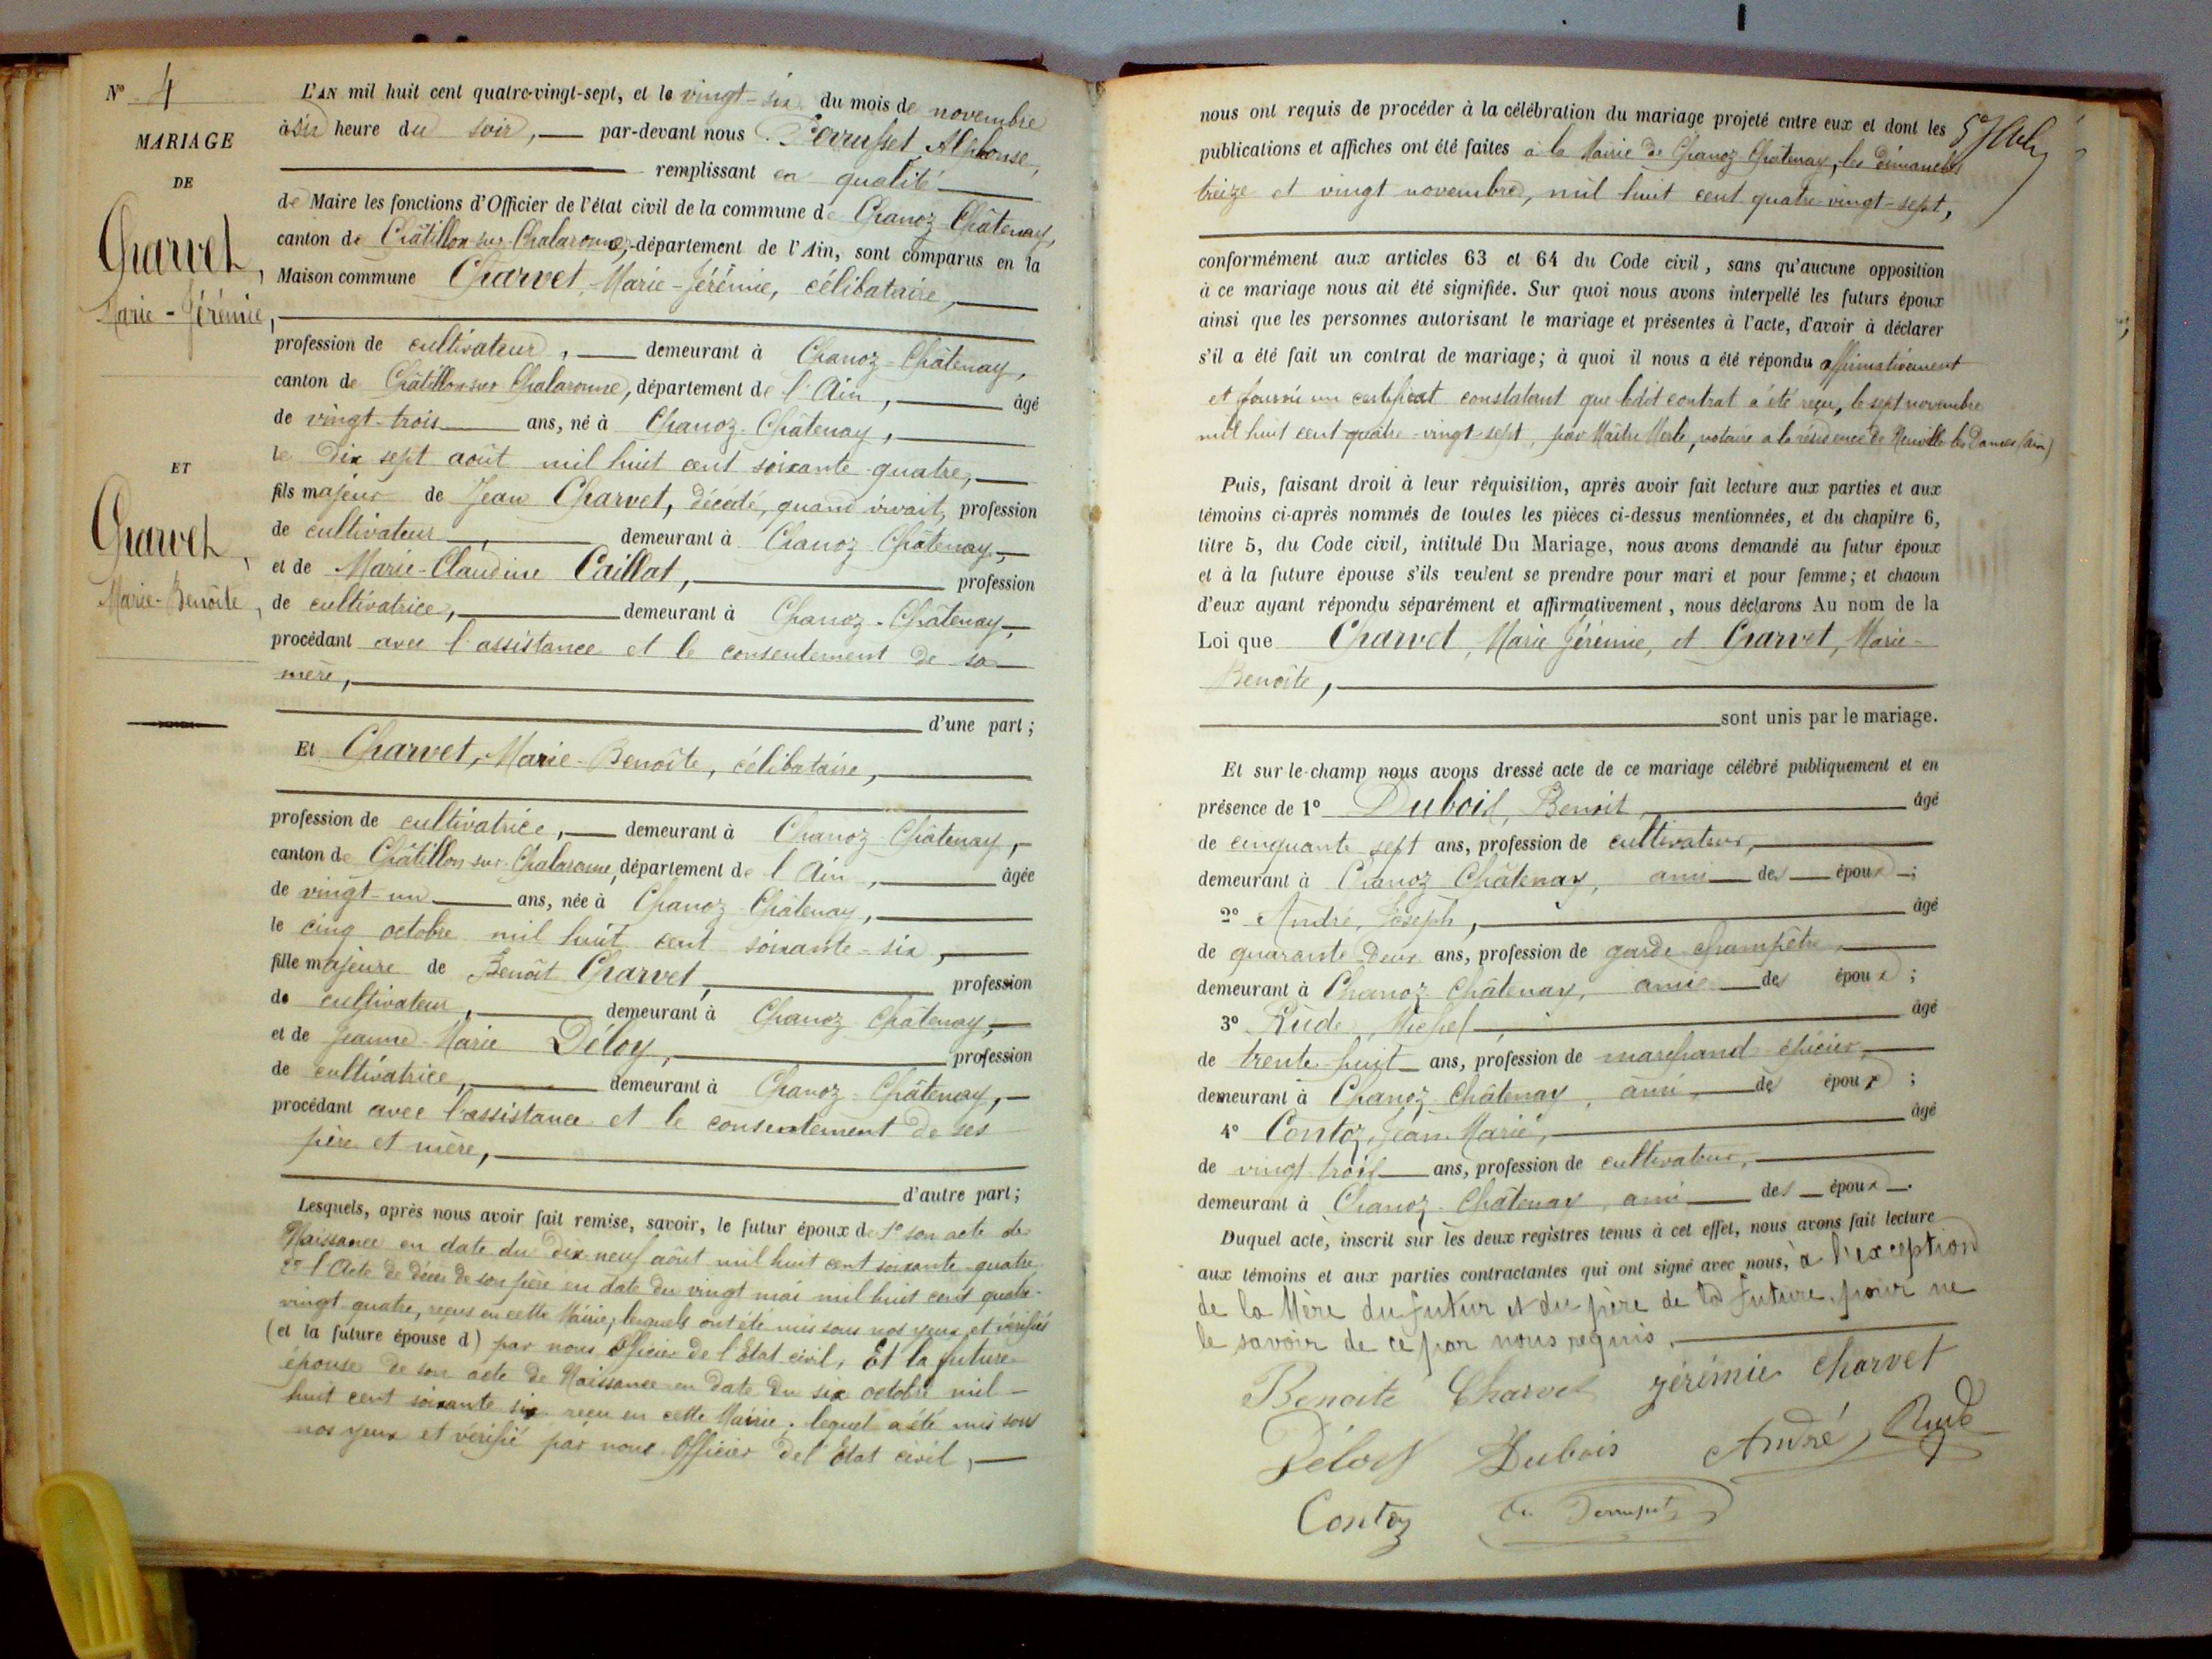 Nº 4
MARIAGE
DE
Charvet,
Marie-Jérémie,
ET
Charvet,
Marie-Benoîte,
L'AN mil huit cent quatre-vingt-sept, et le vingt-six du mois de novembre
à six heure du soir, par-devant nous Perrusset Alphonse,
remplissant en qualité
de Maire les fonctions d'Officier de l'état civil de la commune de Chanoz-Châtenay,
canton de Châtillon-sur-Chalaronne, département de l'Ain, sont comparus en la
Maison commune Charvet, Marie-Jérémie, célibataire,
profession de cultivateur, demeurant à Chanoz-Châtenay,
canton de Châtillon-sur-Chalaronne, département de l'Ain, âgé
de vingt-trois ans, né à Chanoz-Châtenay,
le dix sept août mil huit cent soixante-quatre,
fils majeur de Jean Charvet, décédé, quand vivait, profession
de cultivateur, demeurant à Chanoz-Châtenay,
et de Marie-Claudine Caillat, profession
de cultivatrice, demeurant à Chanoz-Châtenay,
procédant avec l'assistance et le consentement de sa
mère,
d'une part;
Et Charvet, Marie-Benoîte, célibataire,
profession de cultivatrice, demeurant à Chanoz-Châtenay,
canton de Châtillon-sur-Chalaronne, département de l'Ain, âgée
de vingt-un ans, née à Chanoz-Châtenay,
le cinq octobre mil huit cent soixante-six,
fille majeure de Benoît Charvet, profession
de cultivateur, demeurant à Chanoz-Châtenay,
et de Jeanne-Marie Déloy, profession
de cultivatrice, demeurant à Chanoz-Châtenay,
procédant avec l'assistance et le consentement de ses
père et mère,
d'autre part;
Lesquels, après nous avoir fait remise, savoir, le futur époux de 1º son acte de
Naissance en date du dix-neuf août mil huit cent soixante-quatre
2º l'Acte de décès de son père en date du vingt mai mil huit cent quatre-
vingt-quatre, reçus en cette Mairie, lesquels ont été mis sous nos yeux et vérifiés
(et la future épouse d) par nous Officier de l'Etat civil, Et la future
épouse de son acte de Naissance en date du six octobre mil-
huit cent soixante six reçu en cette Mairie, lequel a été mis sous
nos yeux et vérifié par nous Officier de l'Etat civil,
nous ont requis de procéder à la célébration du mariage projeté entre eux et dont les
publications et affiches ont été faites à la Mairie de Chanoz Châtenay, les dimanches
treize et vingt novembre, mil huit cent quatre-vingt-sept,
conformément aux articles 63 et 64 du Code civil, sans qu'aucune opposition
à ce mariage nous ait été signifiée. Sur quoi nous avons interpellé les futurs époux
ainsi que les personnes autorisant le mariage et présentes à l'acte, d'avoir à déclarer
s'il a été fait un contrat de mariage; à quoi il nous a été répondu affirmativement
et fourni un certificat constatant que ledit contrat a été reçu, le sept novembre
mil huit cent quatre-vingt-sept, par Maître Merle, notaire à la résidence de Neuville les Dames (Ain)
Puis, faisant droit à leur réquisition, après avoir fait lecture aux parties et aux
témoins ci-après nommés de toutes les pièces ci-dessus mentionnées, et du chapitre 6,
titre 5, du Code civil, intitulé Du Mariage, nous avons demandé au futur époux
et à la future épouse s'ils veulent se prendre pour mari et pour femme; et chacun
d'eux ayant répondu séparément et affirmativement, nous déclarons Au nom de la
Loi que Charvet, Marie Jérémie, et Charvet, Marie-
Benoîte,
sont unis par le mariage.
Et sur-le-champ nous avons dressé acte de ce mariage célébré publiquement et en
présence de 1º Dubois, Benoit, âgé
de cinquante sept ans, profession de cultivateur,
demeurant à Chanoz Châtenay, ami des époux;
2º André, Joseph, âgé
de quarante-deux ans, profession de garde-champêtre,
demeurant à Chanoz Châtenay, amie des époux;
3º Rude, Michel, âgé
de trente-huit ans, profession de marchand épicier,
demeurant à Chanoz-Châtenay, ami des époux;
4º Contoz, Jean-Marie, âgé
de vingt-trois ans, profession de cultivateur,
demeurant à Chanoz-Châtenay, ami des époux.
Duquel acte, inscrit sur les deux registres tenus à cet effet, nous avons fait lecture
aux témoins et aux parties contractantes qui ont signé avec nous, à l'exception
de la Mère du futur et du père de la future, pour ne
le savoir de ce par nous requis.
Benoite Charvet Jérémie Charvet
Déloy Dubois André Rude
Contoz Perrusset